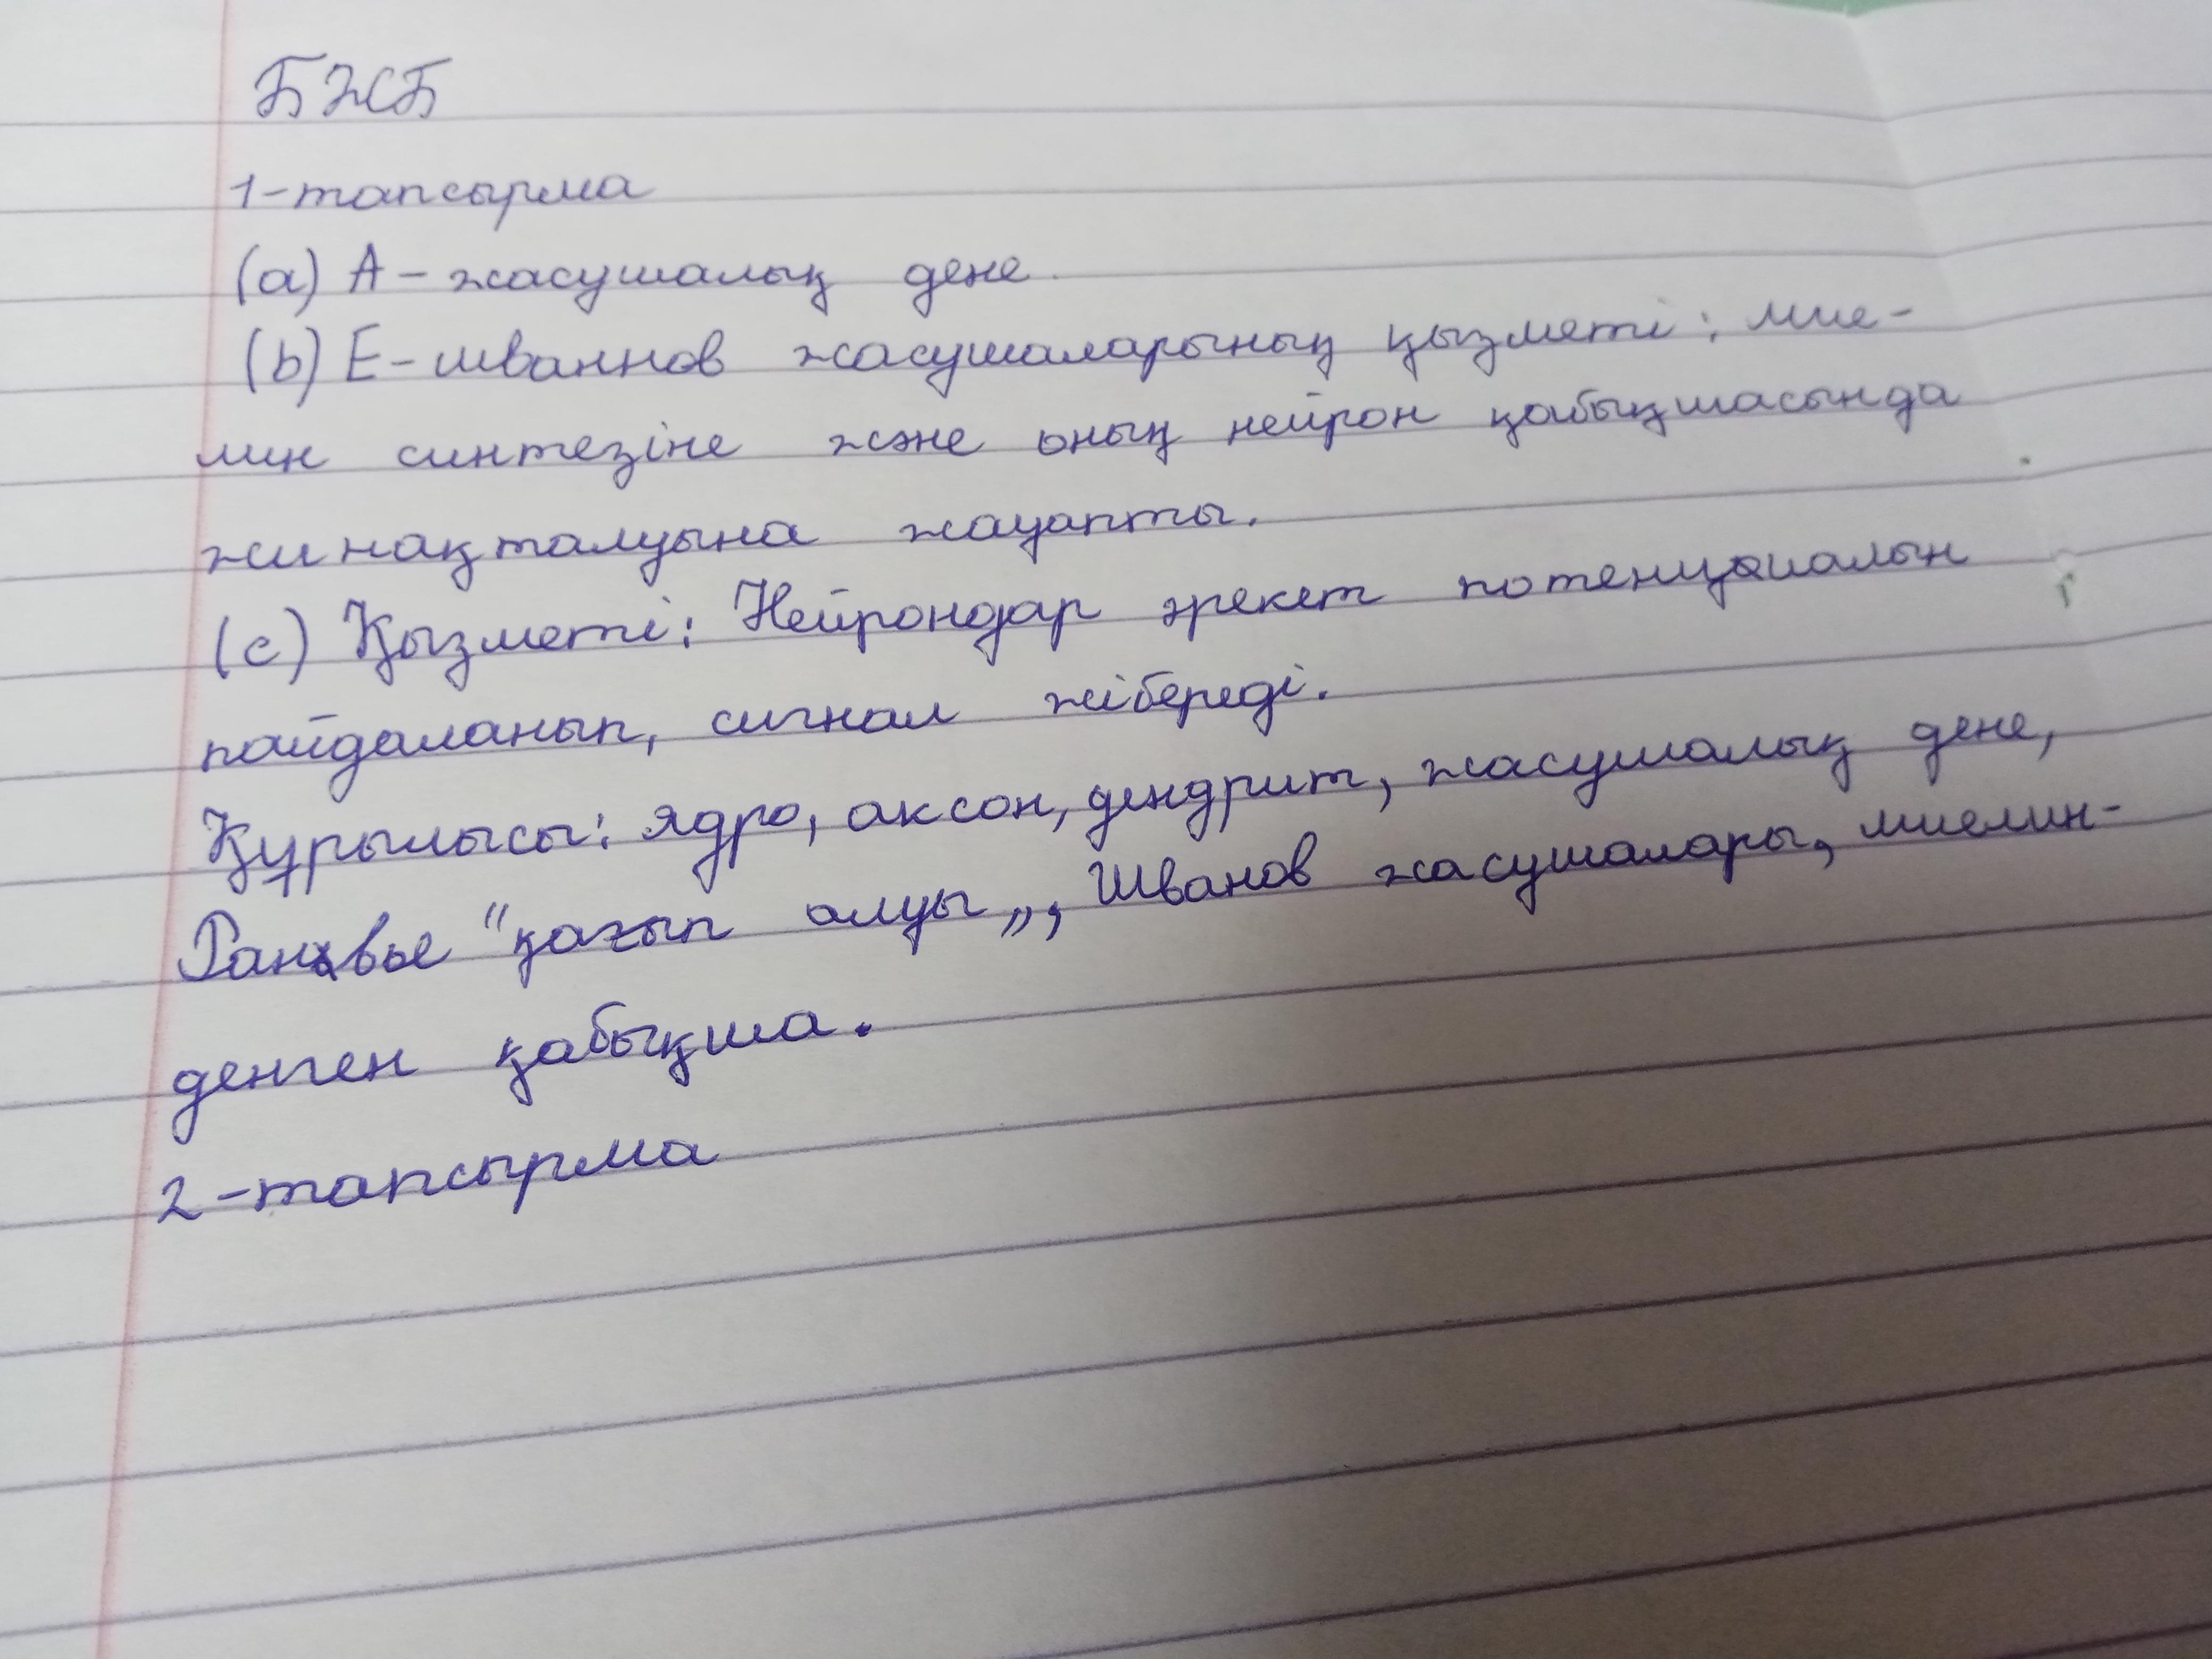 БЖБ
1-тапсырма
(a) А - жасушалық дене
(b) Е - шваннов жасушаларының қызметі: мие-
лин синтезіне және оның нейрон қабықшасында
жинақталуына жауапты.
(c) Қызметі: Нейрондар әрекет потенциалын
пайдаланып, сигнал жібереді.
Құрылысы: ядро, аксон, дендрит, жасушалық дене,
Ранвье "қағып алуы", Шванов жасушалары, миелин-
денген қабықша.
2-тапсырма